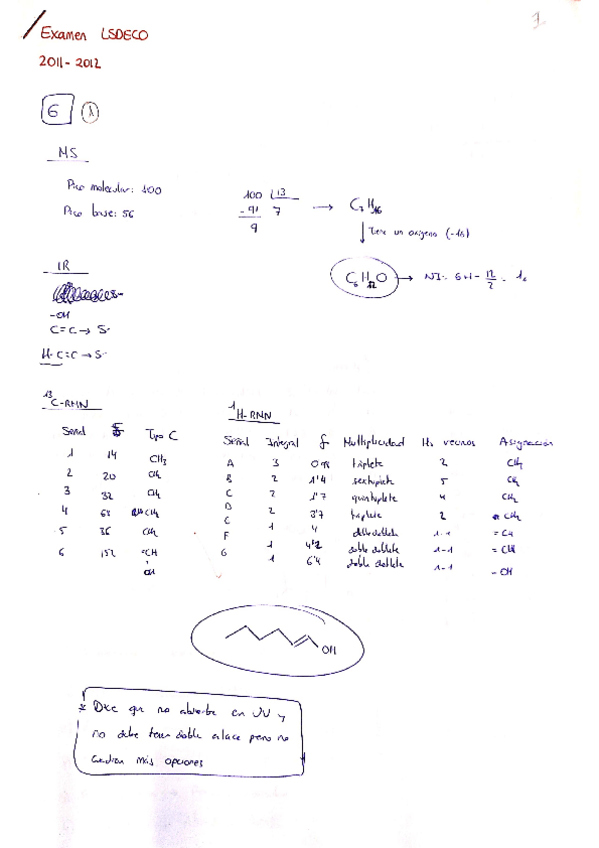 1
Examen LSDECO
2011-2012
6 1
MS
Pico molecular: 100
Pico base: 56
100 13
-91 7
9
→ C7H16
Tiene un oxígeno (-16)
C6H12O → NI: 6+1- 12/2 = 1.
IR
-OH
C=C → Sí
H-C=C → Sí
13C-RMN
Señal δ Tipo C
1 14 CH3
2 20 CH2
3 32 CH2
4 68 CH2
5 36 CH2
6 152 =CH
OH
1H-RMN
Señal Integral δ Multiplicidad Hs vecinos Asignación
A 3 triplete 2 CH3
B 2 1'4 sextuplete 5 CH2
C 2 1'7 quintuplete 4 CH2
D 2 3'7 triplete 2 CH2
1 4 doble doblete 1-1 =CH
F 1 4'2 doble doblete 1-1 =CH
G 1 6'4 doble doblete 1-1 -OH
OH
* Dice que no absorbe en UV y
no debe tener doble enlace pero no
cuadran más opciones